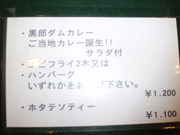 ・黒部ダムカレー
ご当地カレー誕生!!
サラダ付
・エビフライ2本又は
・ハンバーグ
いずれかをお選び下さい。
¥1.200
・ホタテソティー
¥1.100